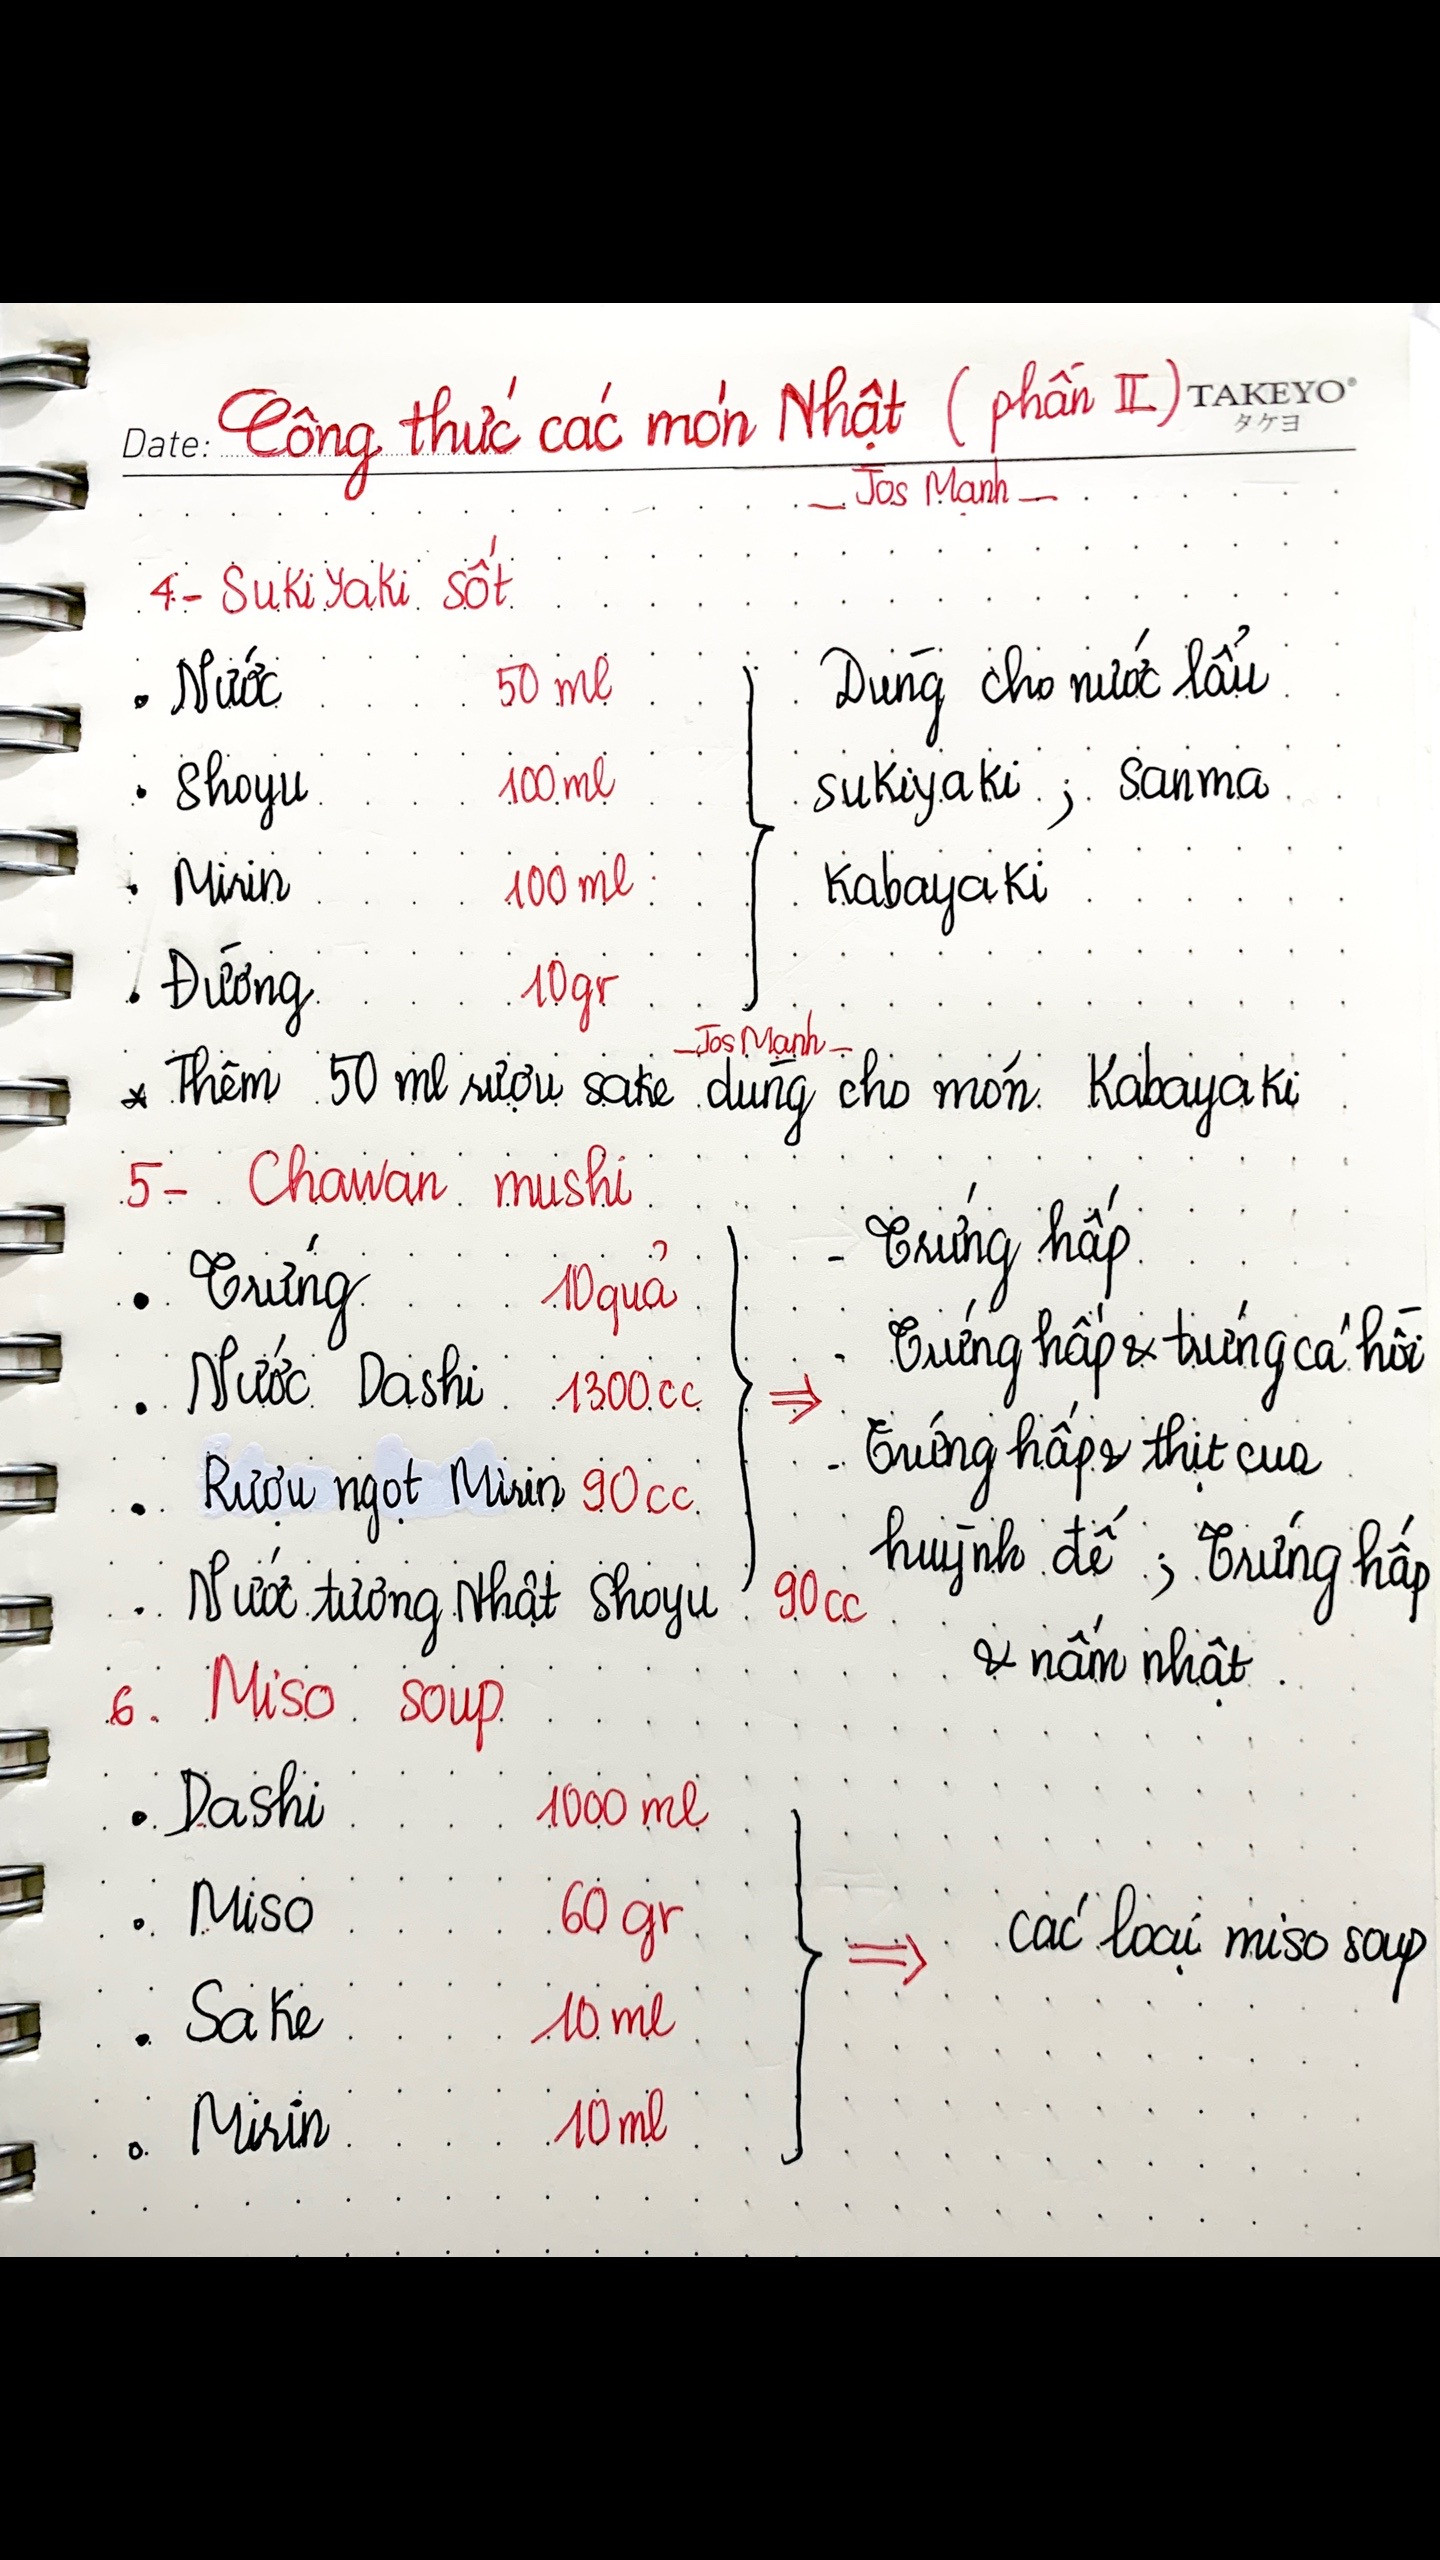 Date: Công thức các món Nhật (phần II) TAKEYO®
タケヨ
_ Jos Mạnh _
4- SukiYaki sốt
• Nước 50 ml
• Shoyu 100 ml
• Mirin 100 ml
• Đường 10 gr
Dùng cho nước lẩu
sukiyaki ; Sanma
Kabayaki
_ Jos Mạnh _
* Thêm 50 ml rượu sake dùng cho món Kabayaki
5- Chawan mushi
• Trứng 10 quả
• Nước Dashi 1300 cc
• Rượu ngọt Mirin 90 cc
• Nước tương Nhật Shoyu 90 cc
⇒
- Trứng hấp
- Trứng hấp & trứng cá hồi
- Trứng hấp & thịt cua
huỳnh đế ; Trứng hấp
& nấm nhật
6. Miso soup
• Dashi 1000 ml
• Miso 60 gr
• Sake 10 ml
• Mirin 10 ml
⇒ các loại miso soup